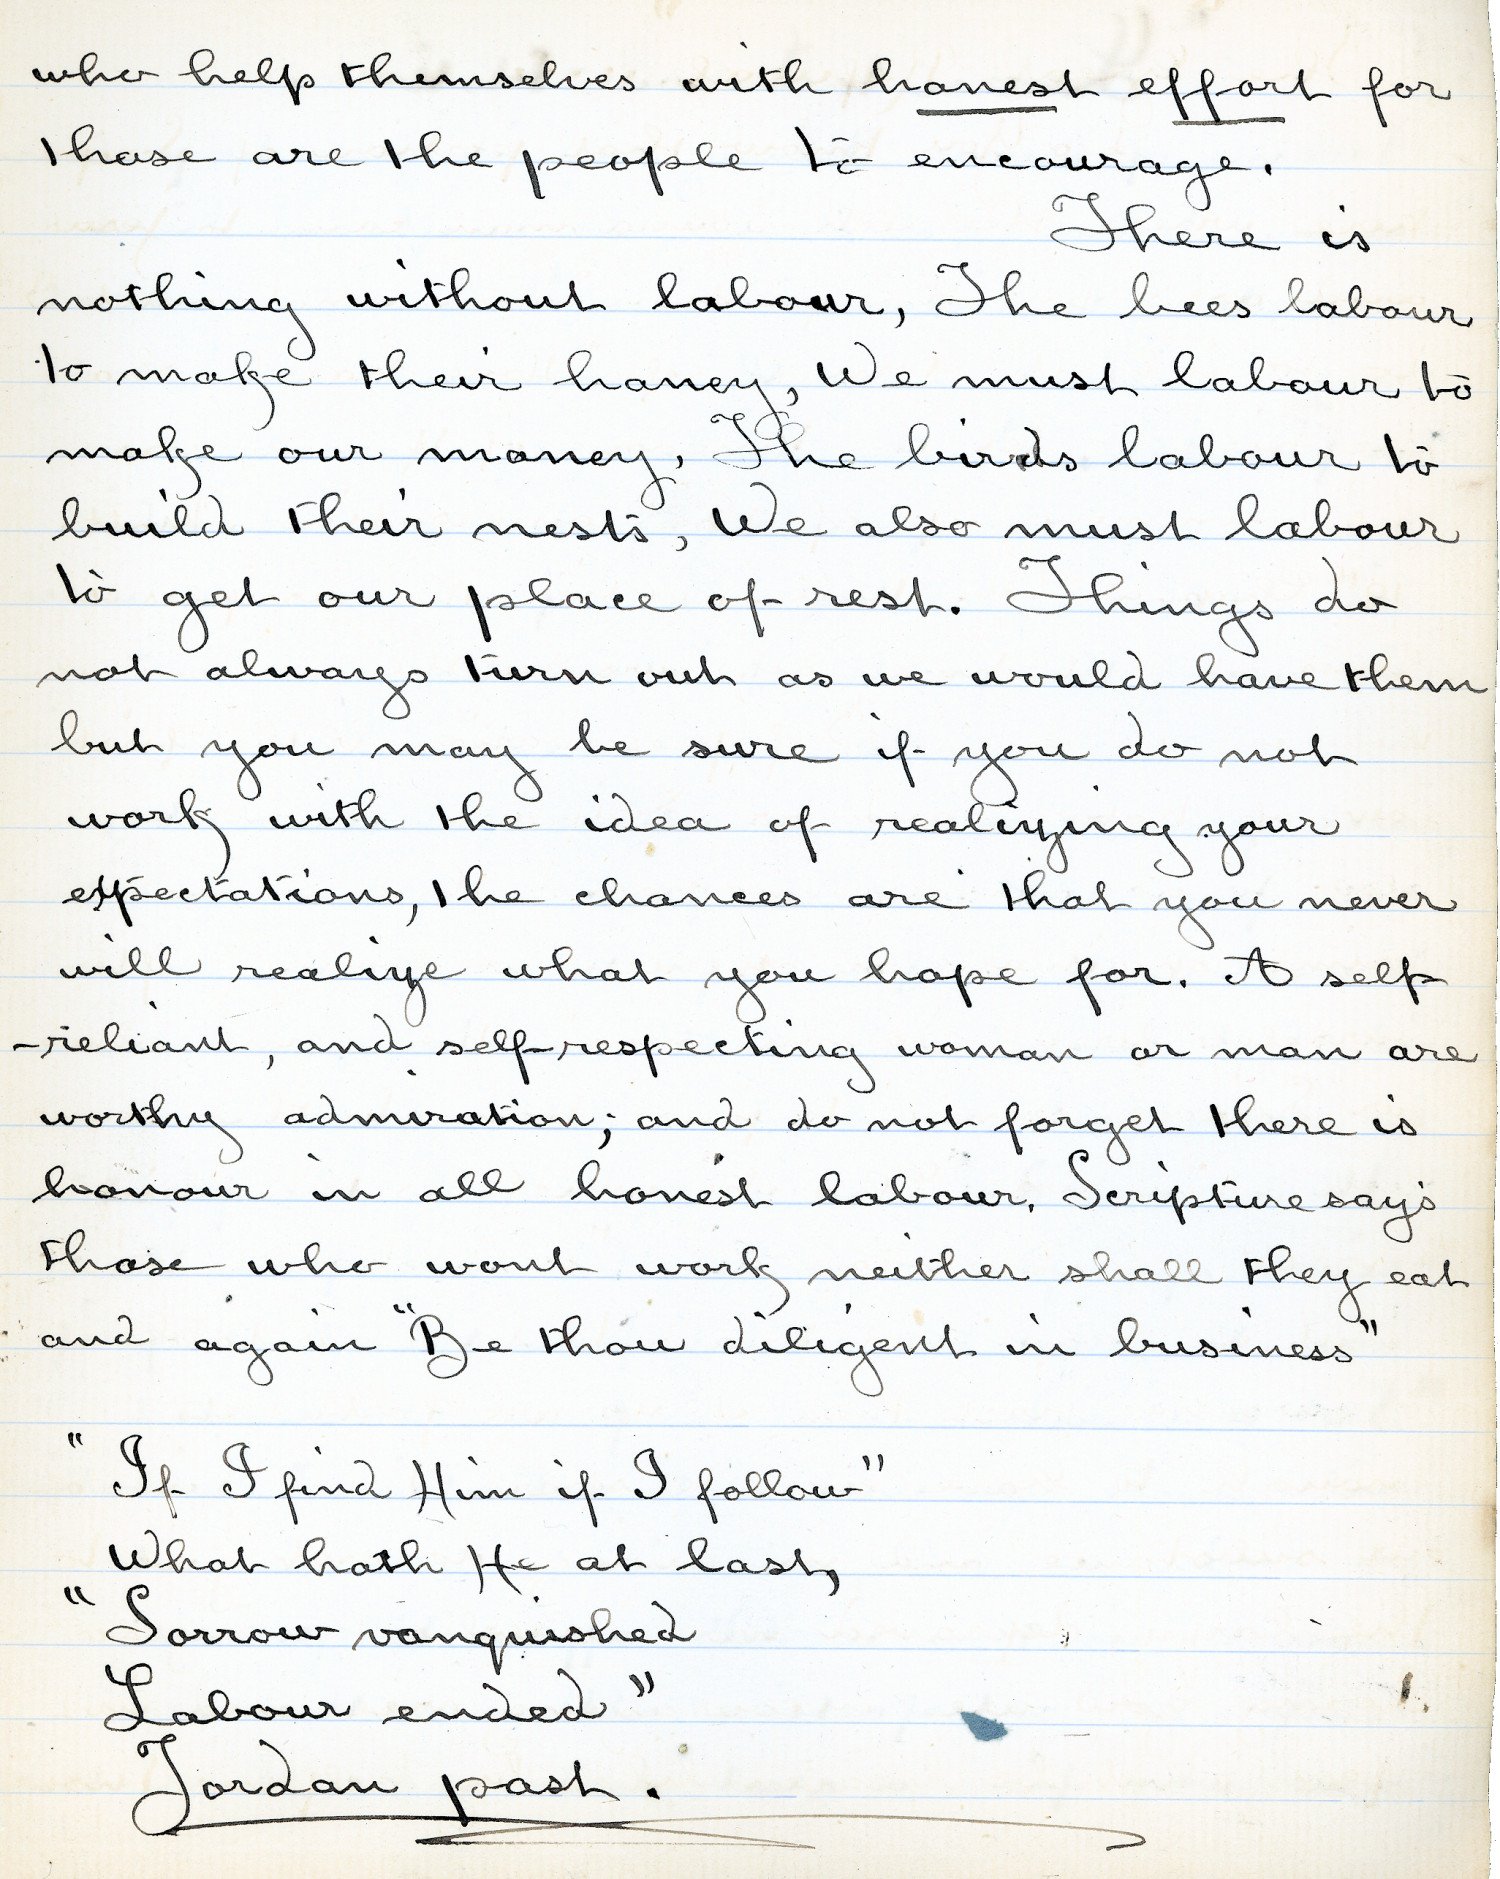 who help themselves with honest effort for
those are the people to encourage.
There is
nothing without labour, The bees labour
to make their honey, We must labour to
make our money, The birds labour to
build their nests, We also must labour
to get our place of rest. Things do
not always turn out as we would have them
but you may be sure if you do not
work with the idea of realizing your
expectations, the chances are that you never
will realize what you hope for. A self
-reliant, and self-respecting woman or man are
worthy admiration; and do not forget there is
honour in all honest labour. Scripture says
those who wont work neither shall they eat
and again "Be thou diligent in business"
"If I find Him if I follow"
What hath He at last,
"Sorrow vanquished
Labour ended"
Jordan past.